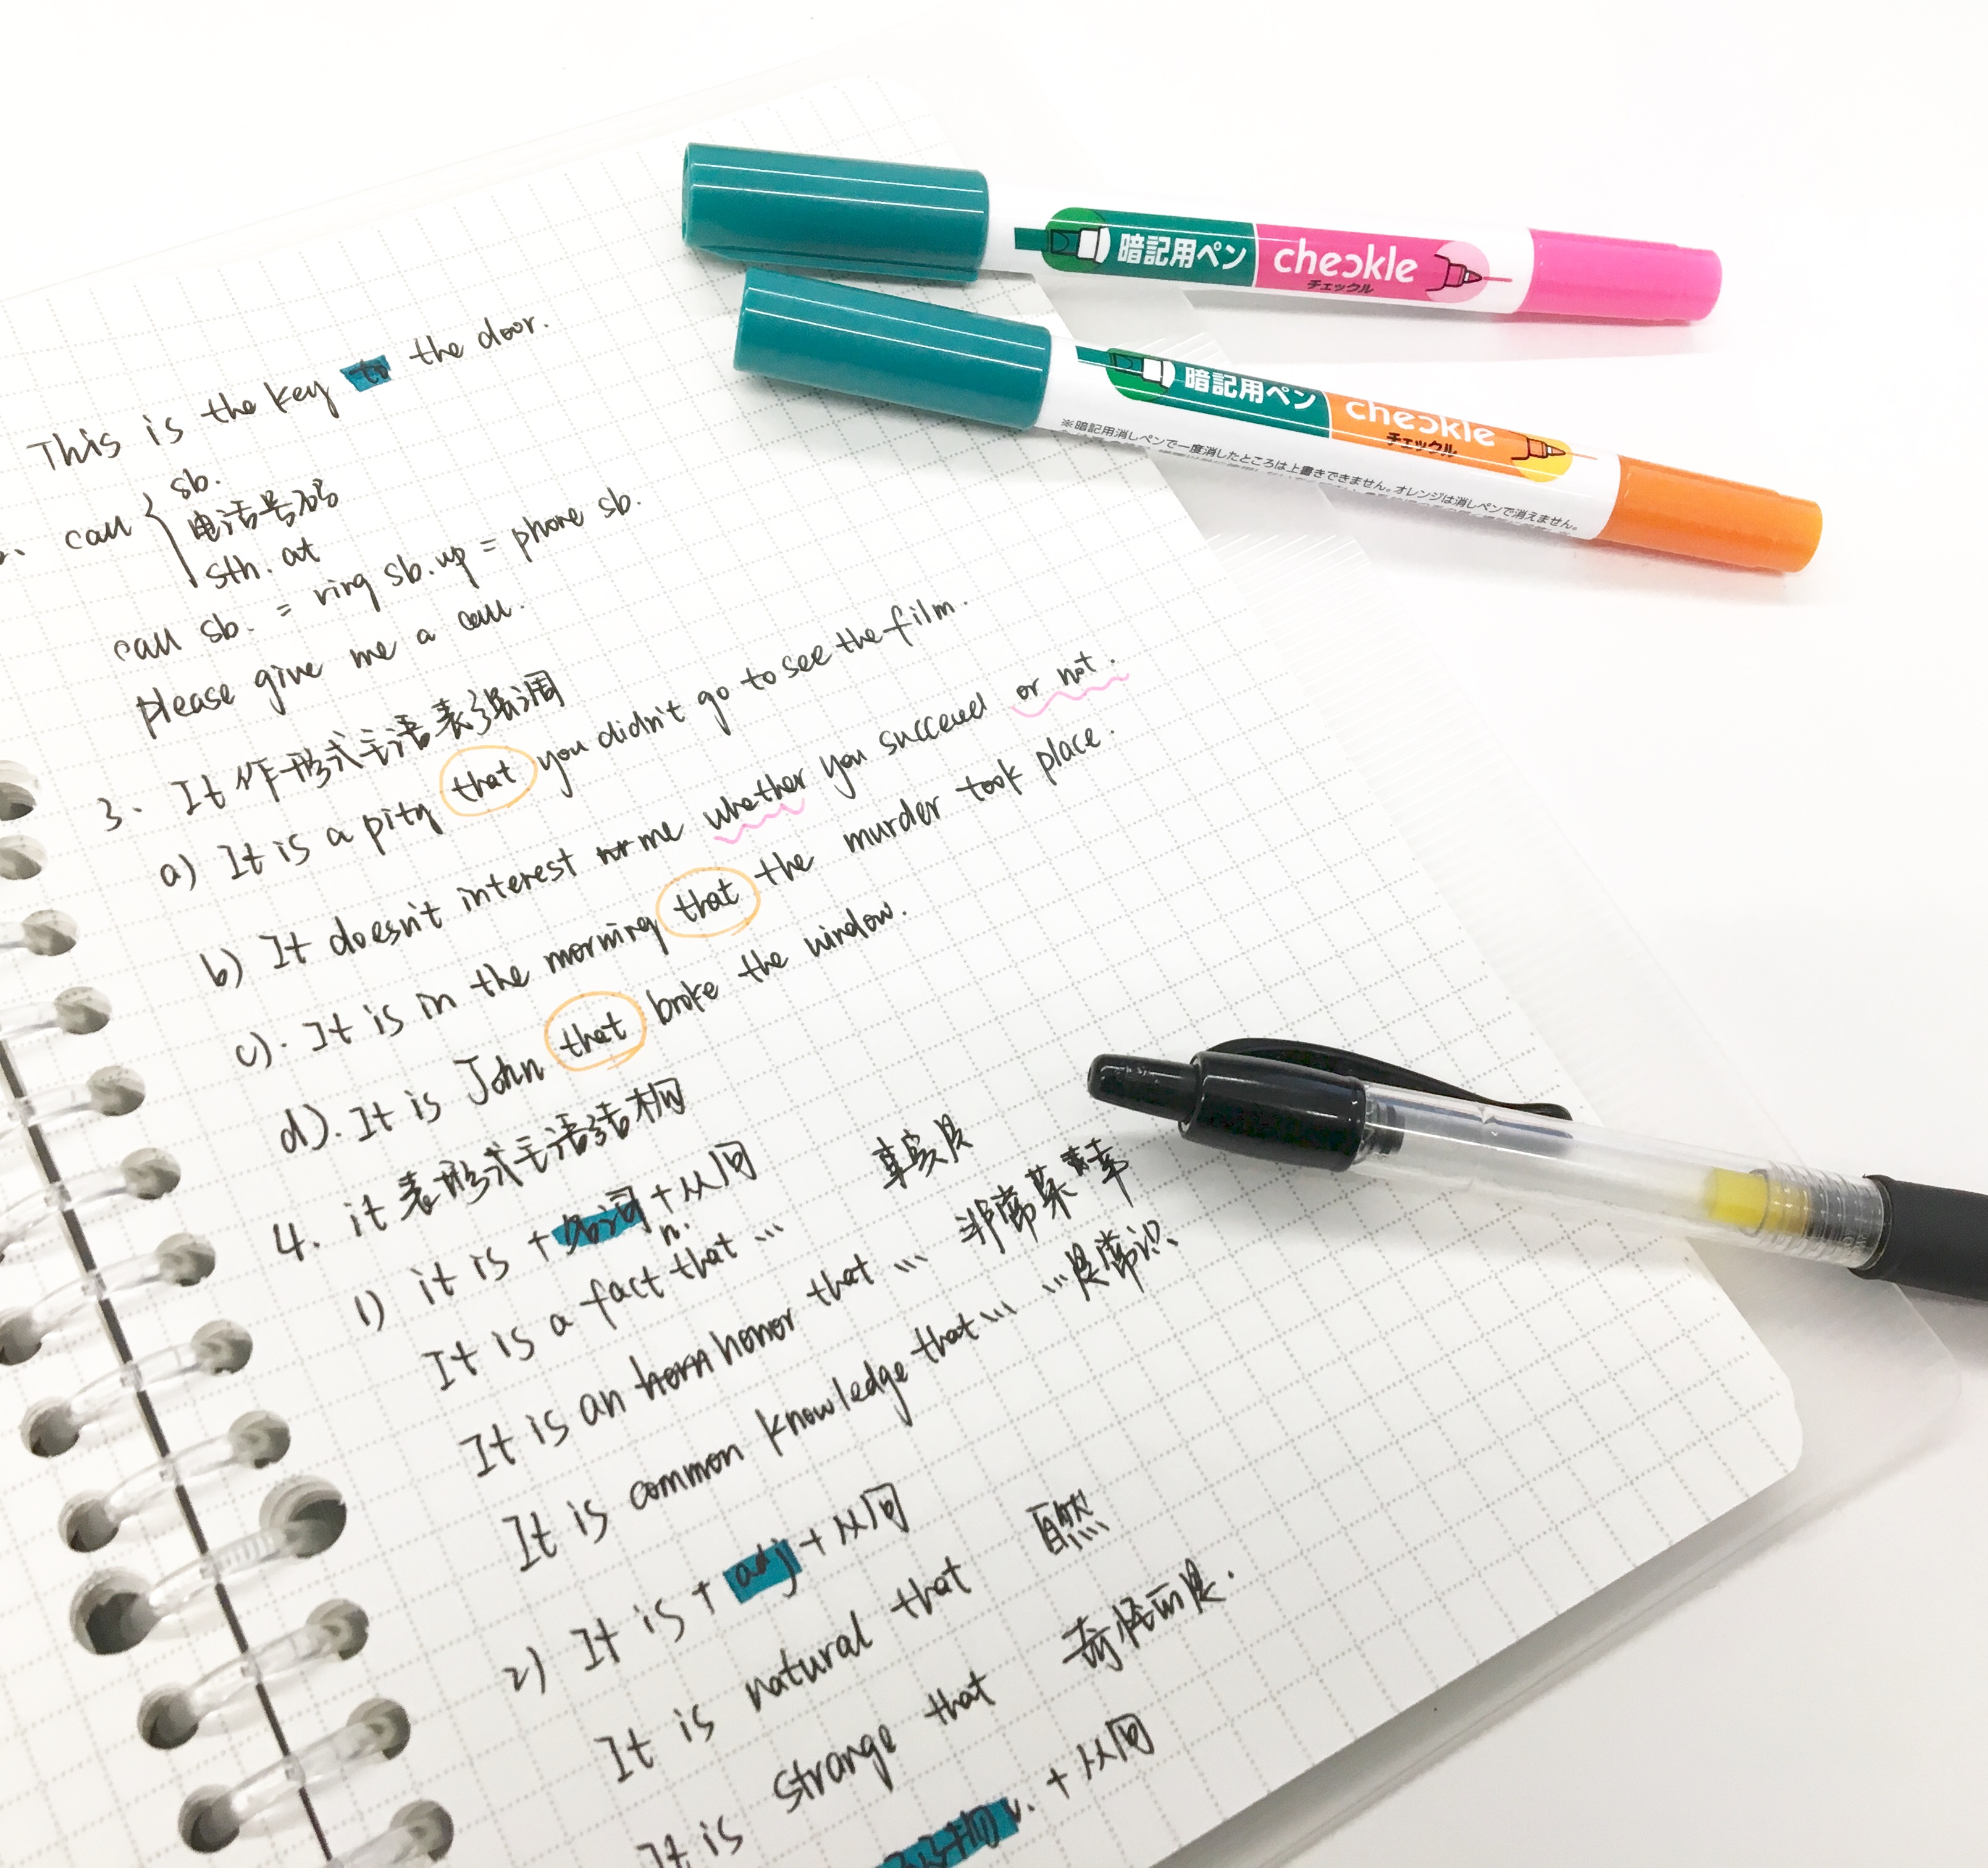 This is the key to the door.
call { sb.
电话号码
sth. at
call sb. = ring sb. up = phone sb.
please give me a call.
3. It 作形式主语表强调
a) It is a pity that you didn't go to see the film.
b) It doesn't interest me whether you succeed or not.
c). It is in the morning that the murder took place.
d). It is John that broke the window.
4. it 表形式主语结构
1) it is + 名词 + 从句
n.
It is a fact that ... 事实是
It is an honor that ... 非常荣幸
It is common knowledge that ... ...是常识
2) It is + adj + 从句
It is natural that 自然
It is strange that 奇怪的是.
It is v. + 从句
暗記用ペン checkle
チェックル
暗記用ペン checkle
チェックル
※暗記用消しペンで一度消したところは上書きできません。オレンジは消しペンで消えません。